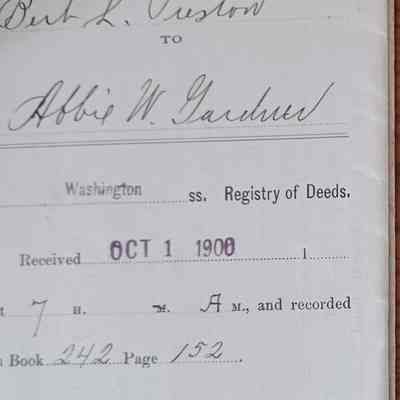 Bert L. Preston
TO
Abbie W. Gardner
Washington ss. Registry of Deeds.
Received OCT 1 1900 1
t 7 H. M. A M., and recorded
Book 242 Page 152.